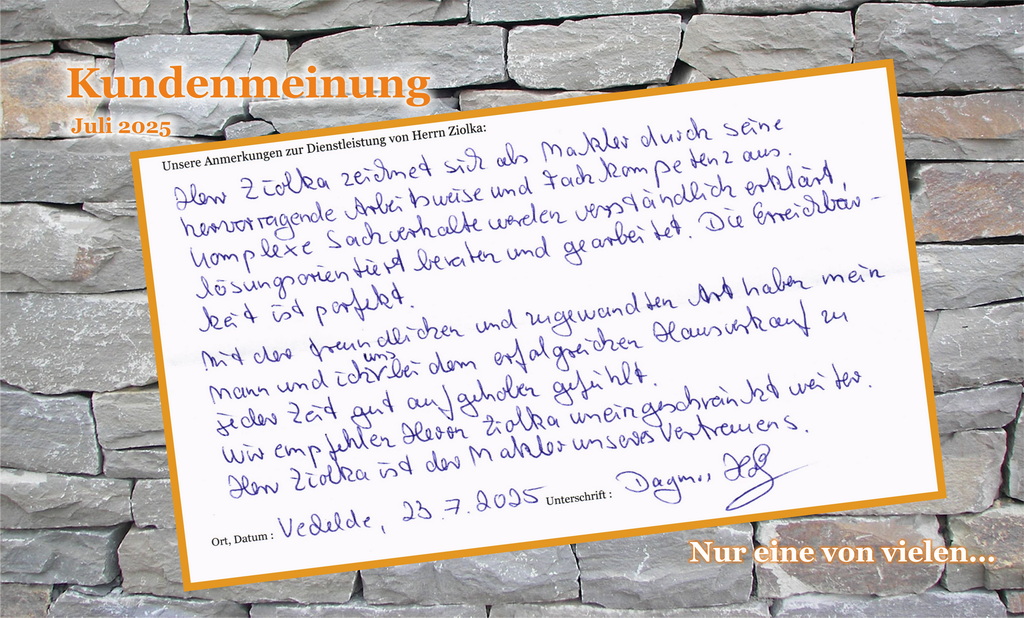 Kundenmeinung
Juli 2025
Unsere Anmerkungen zur Dienstleistung von Herrn Ziolka:
Herr Ziolka zeichnet sich als Makler durch seine
hervorragende Arbeitsweise und Fachkompetenz aus.
Komplexe Sachverhalte werden verständlich erklärt,
lösungsorientiert beraten und gearbeitet. Die Erreichbar-
keit ist perfekt.
Mit der freundlichen und zugewandten Art haben mein
Mann und ich uns bei dem erfolgreichen Hausverkauf zu
jeder Zeit gut aufgehoben gefühlt.
Wir empfehlen Herrn Ziolka uneingeschränkt weiter.
Herr Ziolka ist der Makler unseres Vertrauens.
Ort, Datum : Vechelde, 23.7.2025 Unterschrift : Dagmar
Nur eine von vielen...